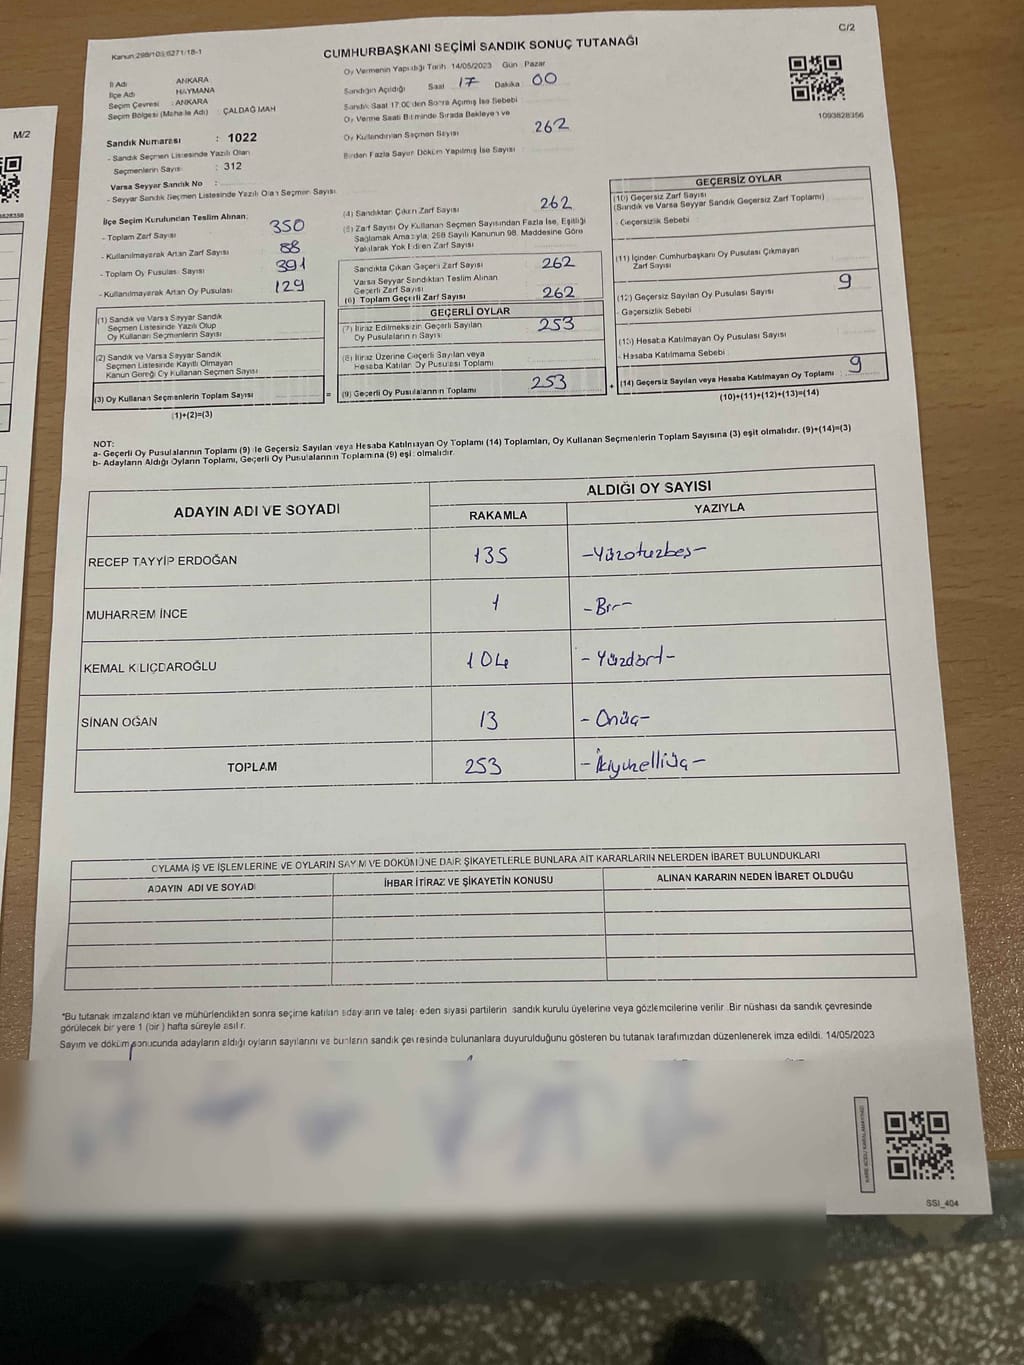 C/2
Kanun:298/103,6271/18-1
CUMHURBAŞKANI SEÇİMİ SANDIK SONUÇ TUTANAĞI
İl Adı : ANKARA
İlçe Adı : HAYMANA
Seçim Çevresi : ANKARA
Seçim Bölgesi (Mahalle Adı) : ÇALDAĞ MAH
Oy Vermenin Yapıldığı Tarih 14/05/2023 Gün Pazar
Sandığın Açıldığı Saat 17 Dakika 00
Sandık Saat 17:00'den Sonra Açılmış İse Sebebi
Oy Verme Saati Bitiminde Sırada Bekleyen ve
Oy Kullandırılan Seçmen Sayısı 262
Birden Fazla Sayım Döküm Yapılmış İse Sayısı
1093828356
Sandık Numarası : 1022
- Sandık Seçmen Listesinde Yazılı Olan
Seçmenlerin Sayısı : 312
Varsa Seyyar Sandık No :
- Seyyar Sandık Seçmen Listesinde Yazılı Olan Seçmen Sayısı
İlçe Seçim Kurulundan Teslim Alınan:
- Toplam Zarf Sayısı 350
- Kullanılmayarak Artan Zarf Sayısı 88
- Toplam Oy Pusulası Sayısı 391
- Kullanılmayarak Artan Oy Pusulası 129
(1) Sandık ve Varsa Seyyar Sandık
Seçmen Listesinde Yazılı Olup
Oy Kullanan Seçmenlerin Sayısı
(2) Sandık ve Varsa Seyyar Sandık
Seçmen Listesinde Kayıtlı Olmayan
Kanun Gereği Oy Kullanan Seçmen Sayısı
(3) Oy Kullanan Seçmenlerin Toplam Sayısı
(1)+(2)=(3)
=
(4) Sandıktan Çıkan Zarf Sayısı 262
(5) Zarf Sayısı Oy Kullanan Seçmen Sayısından Fazla İse, Eşitliği
Sağlamak Amacıyla, 298 Sayılı Kanunun 98. Maddesine Göre
Yakılarak Yok Edilen Zarf Sayısı
Sandıkta Çıkan Geçerli Zarf Sayısı 262
Varsa Seyyar Sandıktan Teslim Alınan
Geçerli Zarf Sayısı
(6) Toplam Geçerli Zarf Sayısı 262
GEÇERLİ OYLAR
(7) İtiraz Edilmeksizin Geçerli Sayılan
Oy Pusulalarının Sayısı 253
(8) İtiraz Üzerine Geçerli Sayılan veya
Hesaba Katılan Oy Pusulası Toplamı
(9) Geçerli Oy Pusulalarının Toplamı 253
+
GEÇERSİZ OYLAR
(10) Geçersiz Zarf Sayısı
(Sandık ve Varsa Seyyar Sandık Geçersiz Zarf Toplamı)
- Geçersizlik Sebebi
(11) İçinden Cumhurbaşkanı Oy Pusulası Çıkmayan
Zarf Sayısı
(12) Geçersiz Sayılan Oy Pusulası Sayısı 9
- Geçersizlik Sebebi
(13) Hesaba Katılmayan Oy Pusulası Sayısı
- Hesaba Katılmama Sebebi
(14) Geçersiz Sayılan veya Hesaba Katılmayan Oy Toplamı 9
(10)+(11)+(12)+(13)=(14)
NOT:
a- Geçerli Oy Pusulalarının Toplamı (9) ile Geçersiz Sayılan veya Hesaba Katılmayan Oy Toplamı (14) Toplamları, Oy Kullanan Seçmenlerin Toplam Sayısına (3) eşit olmalıdır. (9)+(14)=(3)
b- Adayların Aldığı Oyların Toplamı, Geçerli Oy Pusulalarının Toplamına (9) eşit olmalıdır.
ADAYIN ADI VE SOYADI ALDIĞI OY SAYISI
RAKAMLA YAZIYLA
RECEP TAYYİP ERDOĞAN 135 -Yüzotuzbeş-
MUHARREM İNCE 1 -Bir-
KEMAL KILIÇDAROĞLU 104 -Yüzdört-
SİNAN OĞAN 13 -Onüç-
TOPLAM 253 -İkiyüzelliüç-
OYLAMA İŞ VE İŞLEMLERİNE VE OYLARIN SAYIM VE DÖKÜMÜNE DAİR ŞİKAYETLERLE BUNLARA AİT KARARLARIN NELERDEN İBARET BULUNDUKLARI
ADAYIN ADI VE SOYADI İHBAR İTİRAZ VE ŞİKAYETİN KONUSU ALINAN KARARIN NEDEN İBARET OLDUĞU
*Bu tutanak imzalandıktan ve mühürlendikten sonra seçime katılan adayların ve talep eden siyasi partilerin sandık kurulu üyelerine veya gözlemcilerine verilir. Bir nüshası da sandık çevresinde
görülecek bir yere 1 (bir) hafta süreyle asılır.
Sayım ve döküm sonucunda adayların aldığı oyların sayılarını ve bunların sandık çevresinde bulunanlara duyurulduğunu gösteren bu tutanak tarafımızdan düzenlenerek imza edildi. 14/05/2023
SSI_404
M/2